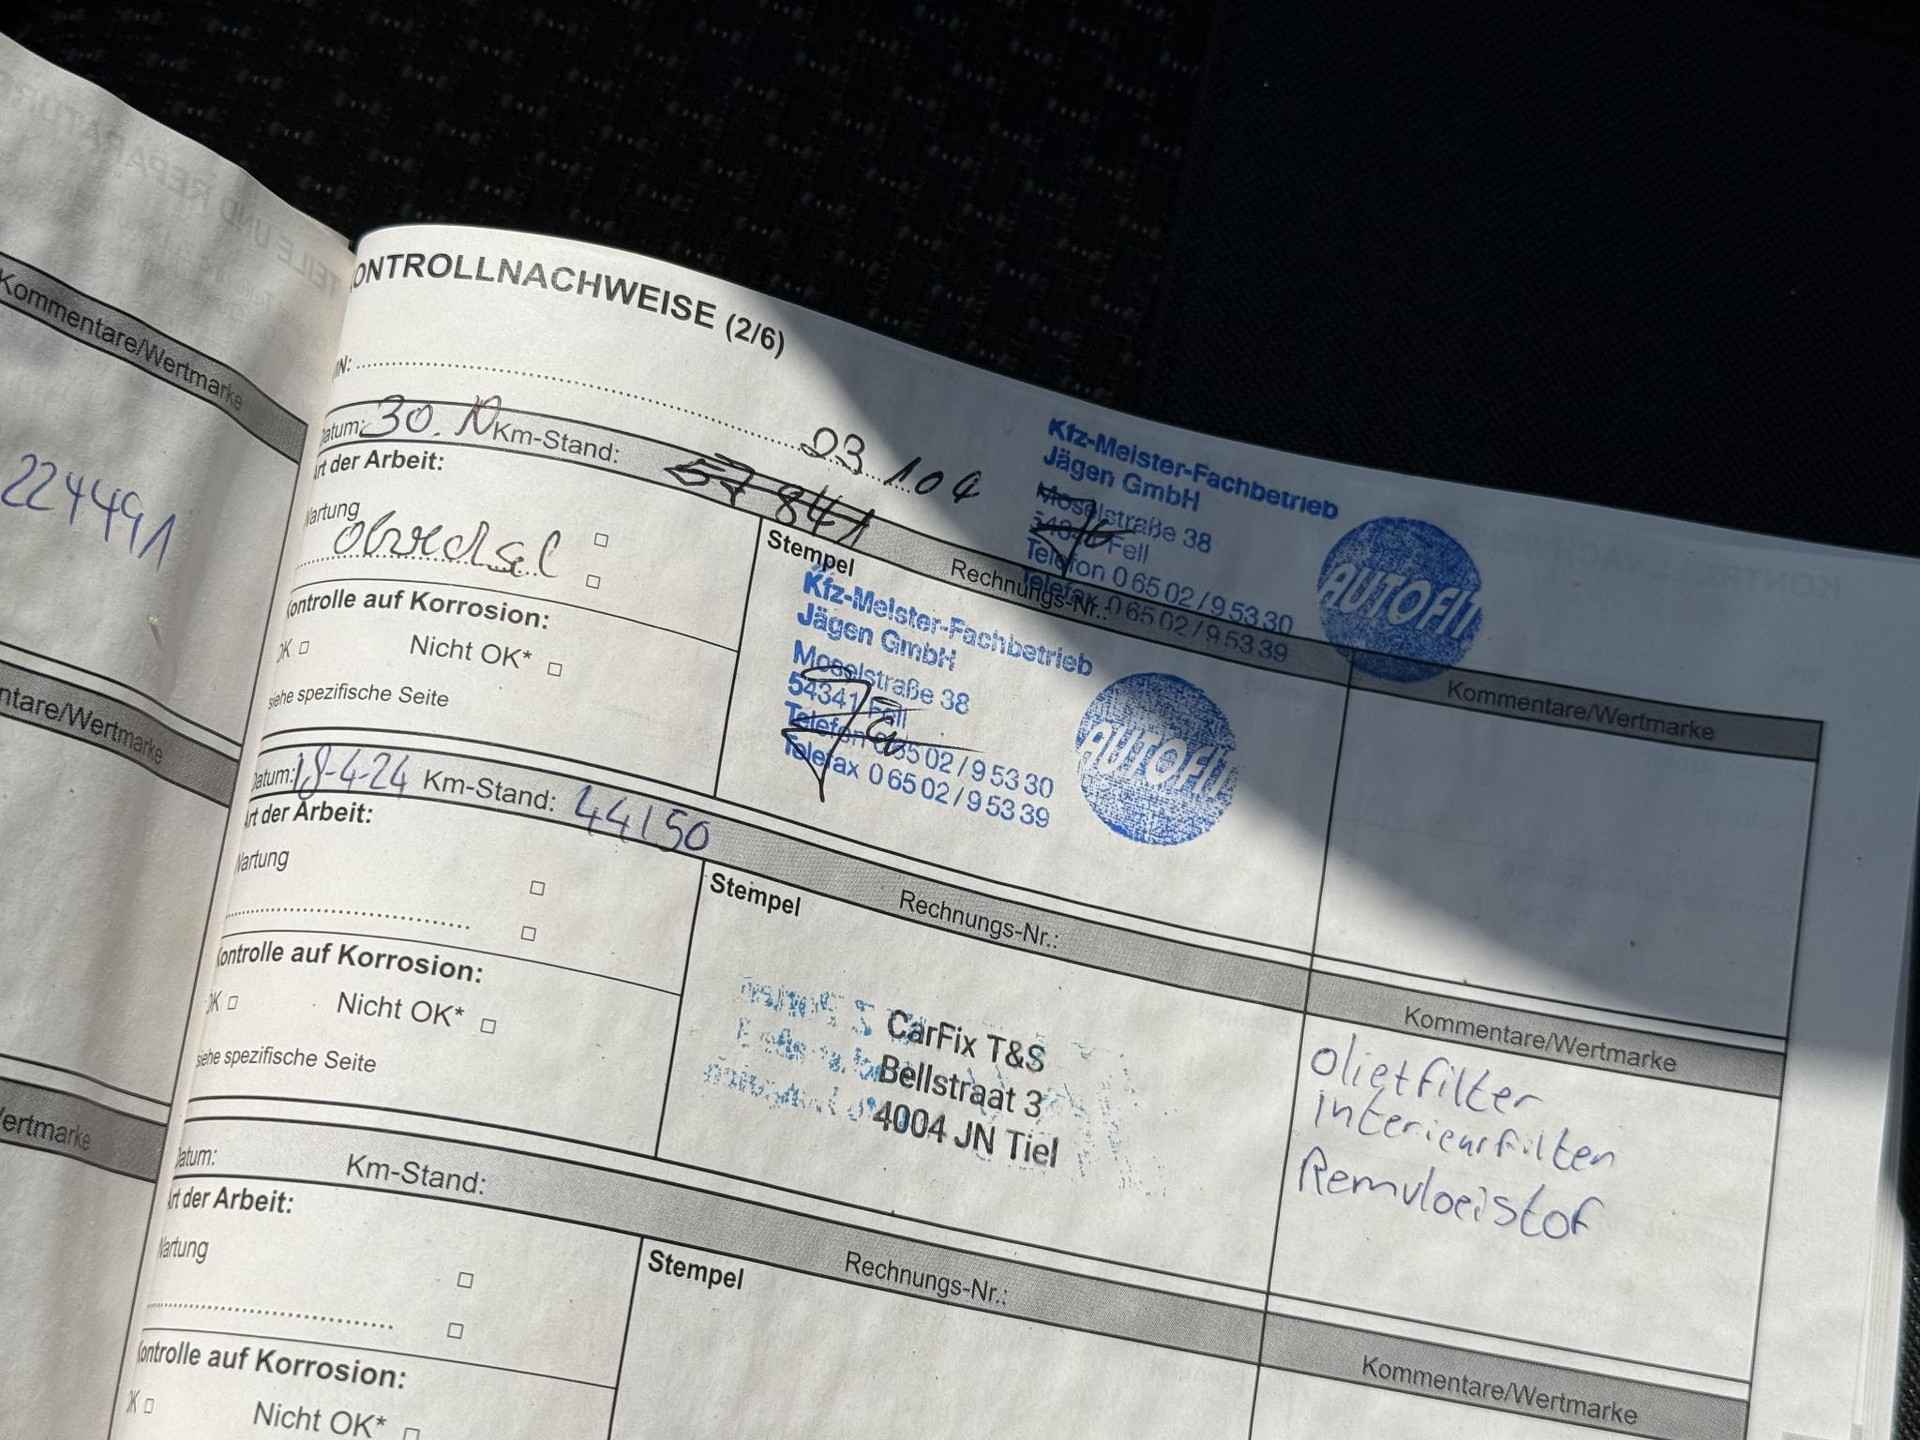 Kommentare/Wertmarke
224491
Kommentare/Wertmarke
Wertmarke
KONTROLLNACHWEISE (2/6)
VIN:
Datum: 30.10 Km-Stand:
57 841
Art der Arbeit:
Wartung
Ölwechsel
Kontrolle auf Korrosion:
OK Nicht OK*
siehe spezifische Seite
Kfz-Meister-Fachbetrieb
Jägen GmbH
Moselstraße 38
54341 Fell
Telefon 0 65 02 / 9 53 30
Telefax 0 65 02 / 9 53 39
AUTOFIT
Stempel
Rechnungs-Nr.:
Kommentare/Wertmarke
Kfz-Meister-Fachbetrieb
Jägen GmbH
Moselstraße 38
54341 Fell
Telefon 0 65 02 / 9 53 30
Telefax 0 65 02 / 9 53 39
AUTOFIT
Datum: 18-4-24 Km-Stand: 44150
Art der Arbeit:
Wartung
Kontrolle auf Korrosion:
OK Nicht OK*
siehe spezifische Seite
Stempel
Rechnungs-Nr.:
CarFix T&S
Bellstraat 3
4004 JN Tiel
Kommentare/Wertmarke
Olietfilter
interieurfilter
Remvloeistof
Datum: Km-Stand:
Art der Arbeit:
Wartung
Kontrolle auf Korrosion:
OK Nicht OK*
Stempel
Rechnungs-Nr.:
Kommentare/Wertmarke